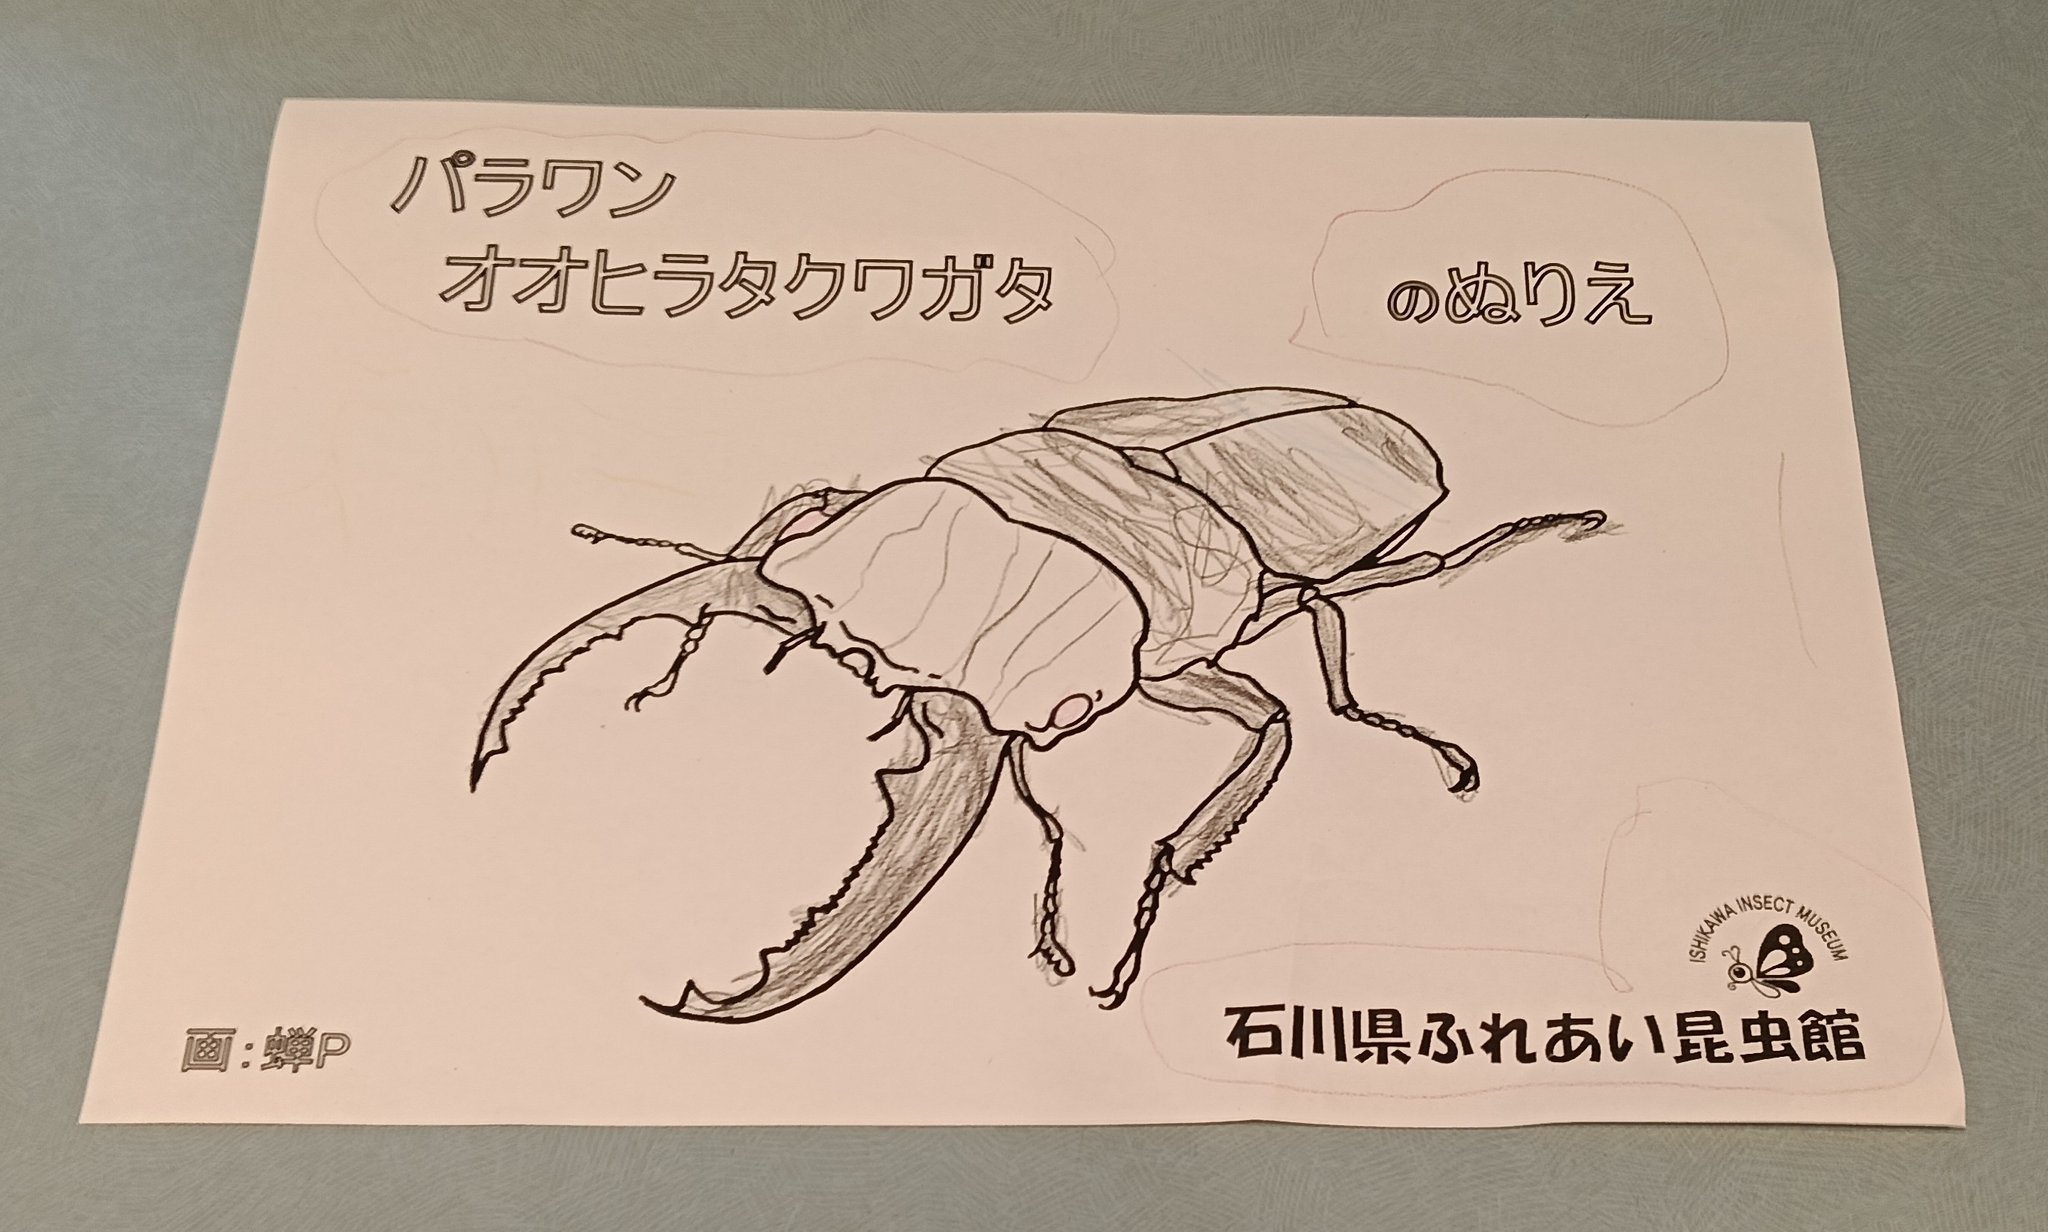 パラワン
オオヒラタクワガタ
のぬりえ
ISHIKAWA INSECT MUSEUM
石川県ふれあい昆虫館
画:蝉P